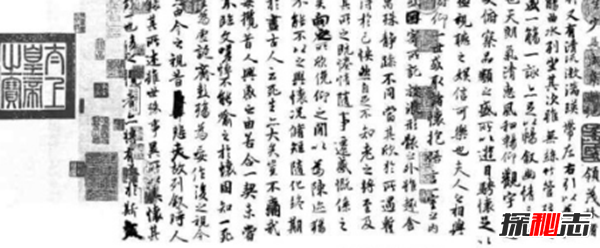 領茂林
又有清流激湍暎帶左右引
曲水列坐其次雖無絲竹管弦
盛一觴一詠亦足以暢敘幽情
也天朗氣清惠風和暢仰觀宇
俯察品類之盛所以遊目騁懷足
視聽之娛信可樂也夫人之相與
仰一世或取諸懷抱悟言一室之內
因寄所託放浪形骸之外雖趣舍
萬殊靜躁不同當其欣於所遇
得於己快然自足不知老之將至及
其所之既惓情隨事遷感慨係之
向之所欣俛仰之閒以為陳迹
不能不以之興懷況脩短隨化終期
於盡古人云死生亦大矣豈不痛
每攬昔人興感之由若合一契未嘗
不臨文嗟悼不能喻之於懷固知一死
為虛誕齊彭殤為妄作後之視今
今之視昔悲夫故列敘時人
其所述雖世殊事異所以興懷其
一也後之攬者亦將有感於斯
太上皇帝之寶
探秘志